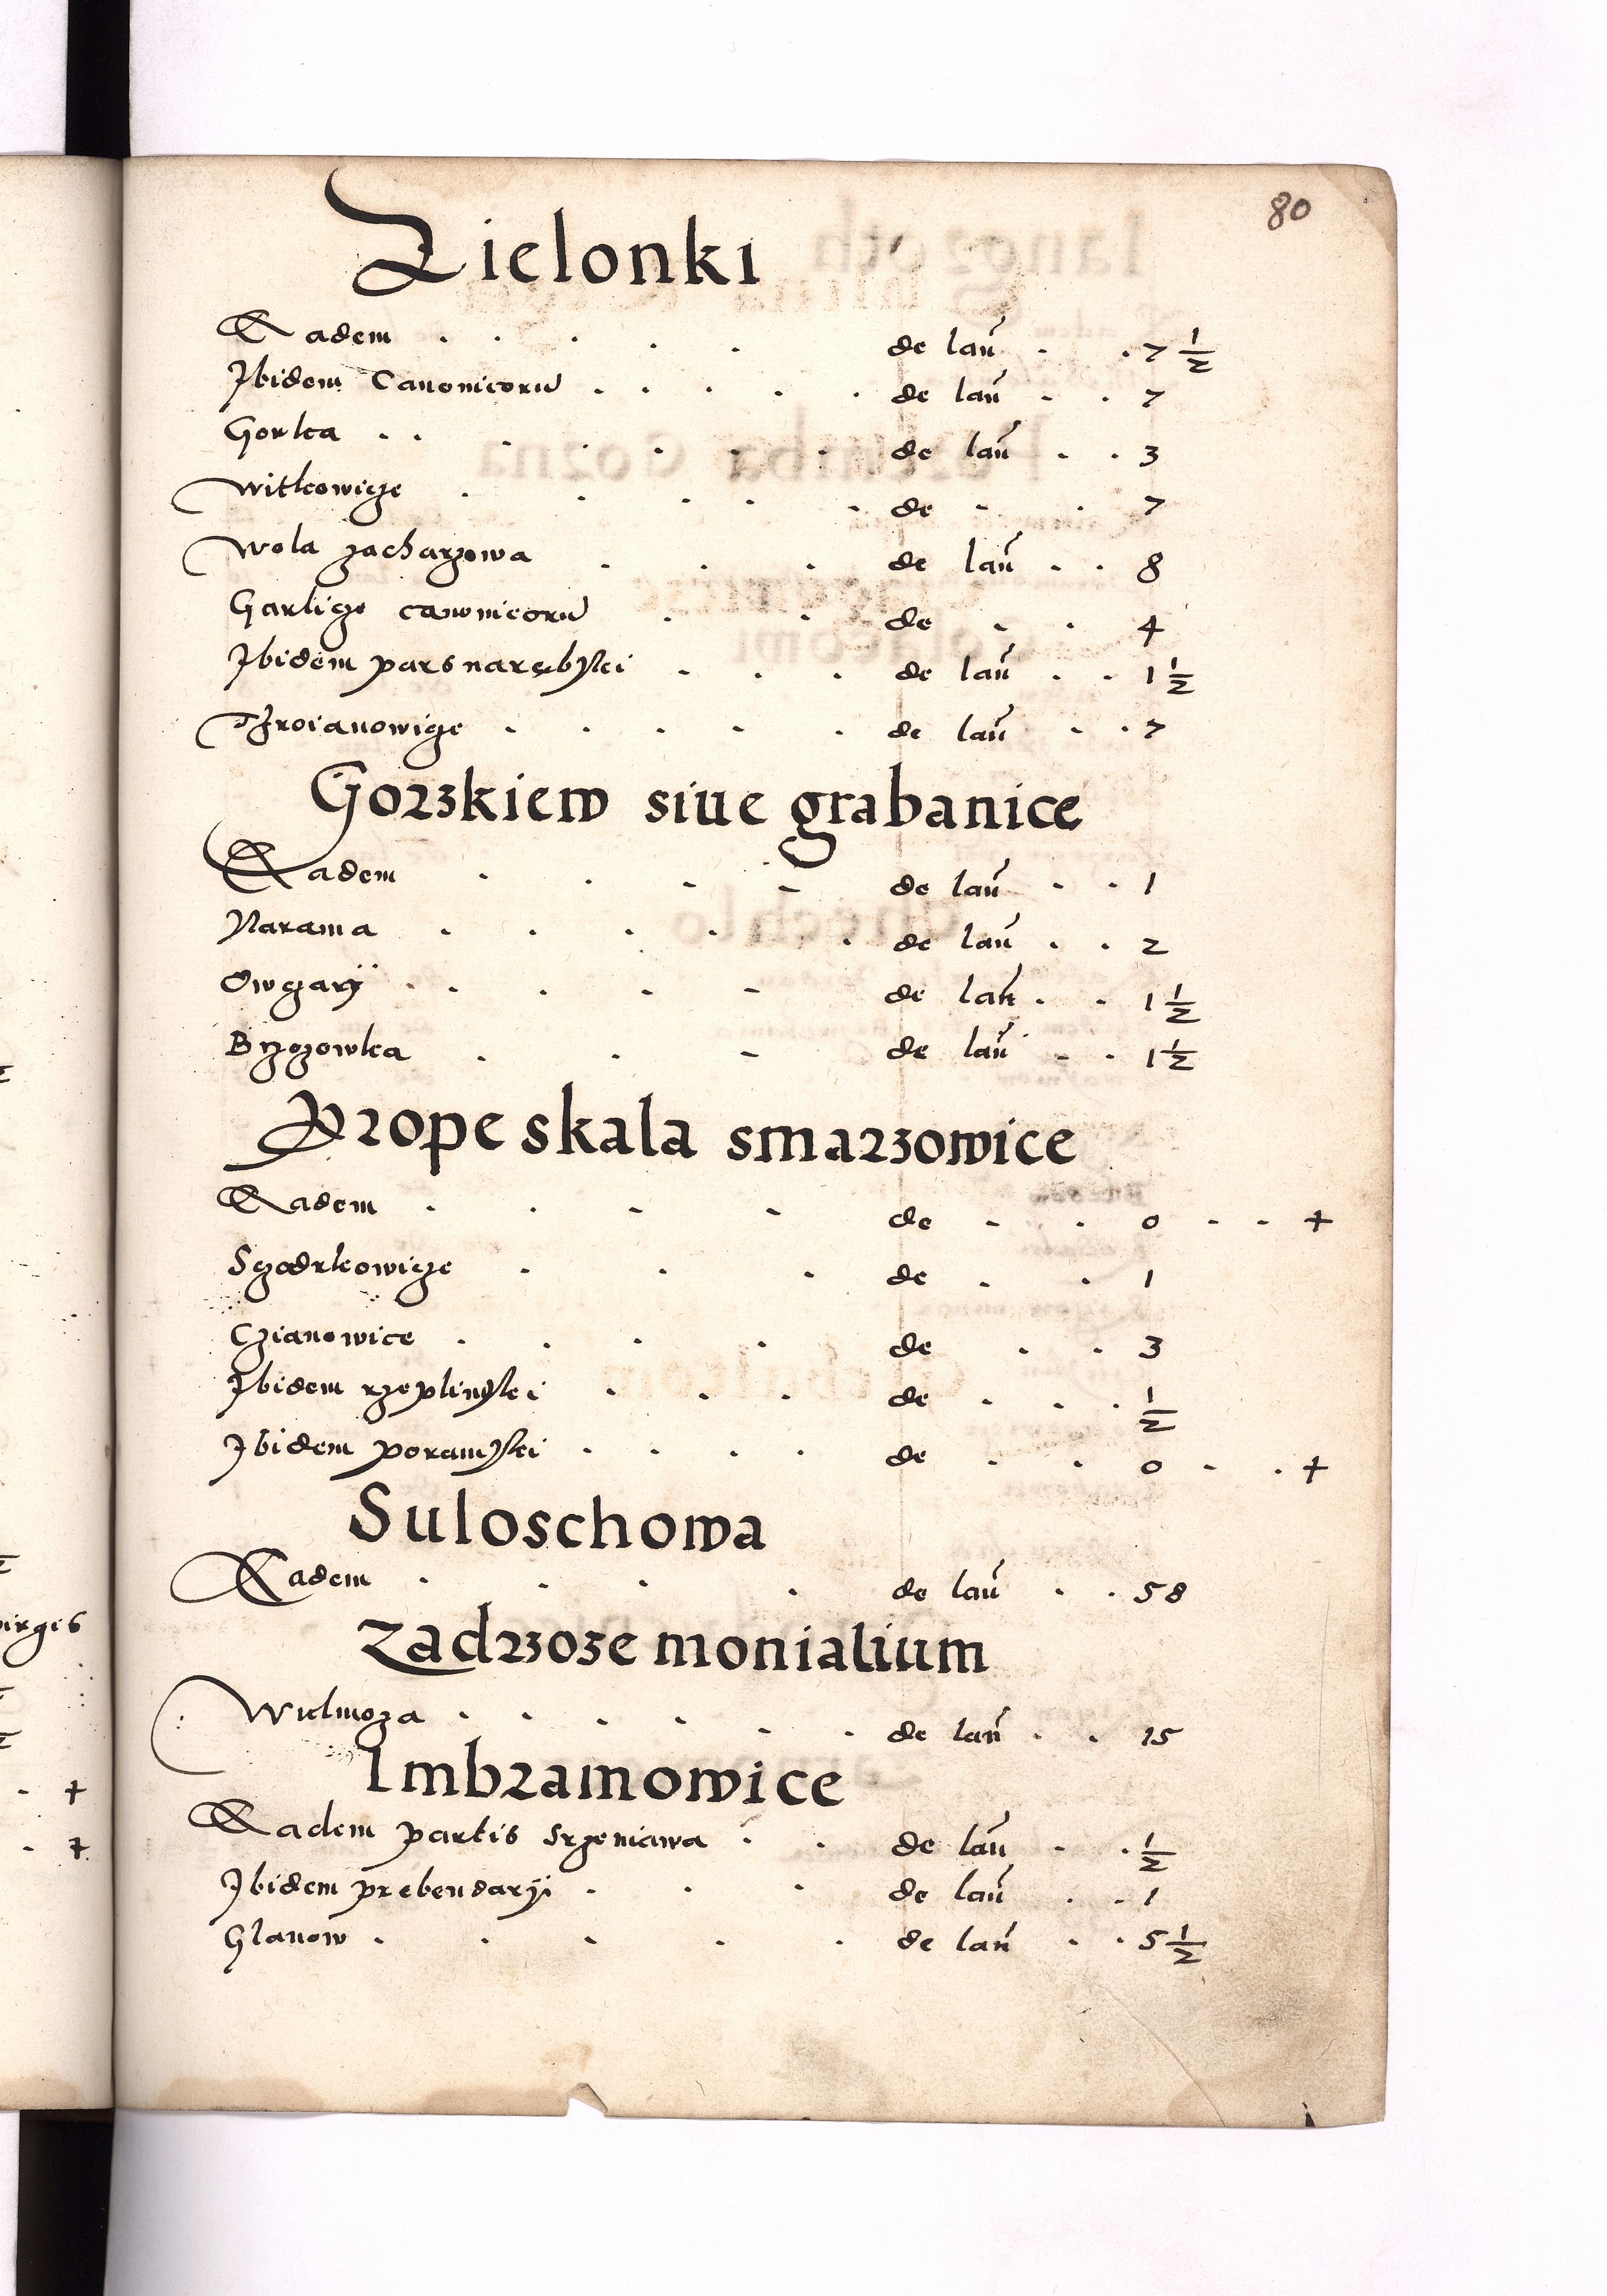 80
Zielonki
Eadem . . . . . de lan̄ . . 7 1/2
Ibidem Canonicorū . . . . . de lan̄ . . 7
Gorka . . . . . . . de lan̄ . . 3
Witkowicze . . . . . de . . 7
Wola zacharzowa . . . de lan̄ . . 8
Garlicze canonicorū . . de . . 4
Ibidem pars narębski . . . de lan̄ . . 1 1/2
Troianowicze . . . . . de lan̄ . . 7
Gorzkiew siue grabanice
Eadem . . . . de lan̄ . . 1
Narama . . . . . de lan̄ . . 2
Owczarÿ . . . . . de lan̄ . . 1 1/2
Brzozowka . . . de lan̄ . . 1 1/2
Prope skala smarzowice
Eadem . . . . de . . 0 . . +
Sczodrkowicze . . . de . . 1
Czianowice . . . . de . . 3
Ibidem rzeplinski . . . de . . . 1/2
Ibidem poramski . . . . de . . 0 . . +
Suloschowa
Eadem . . . . de lan̄ . . 58
Zadrzoze monialium
Wielmoza . . . . . . de lan̄ . . 15
Imbramowice
Eadem partis Srzeniawa . . de lan̄ . . 1/2
Ibidem prebendarÿ . . . de lan̄ . . 1
Glanow . . . . . de lan̄ . . 5 1/2
virgis
+
+